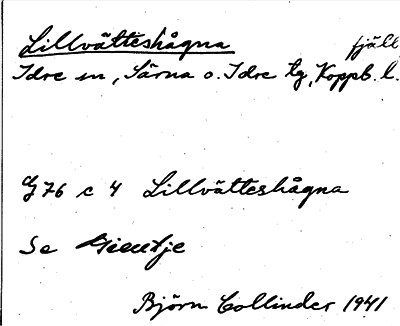 Lillvätteshågna fjäll
Idre sn, Särna o. Idre tg, Koppb. l.
G 76 c 4 Lillvätteshågna
Se
Björn Collinder 1941